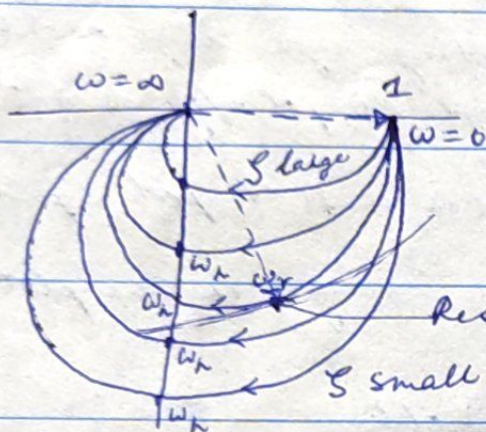 ω = ∞
1
ω = 0
ζ large
ωn
ωr
ωn
ωn
Res
ζ small
ωn